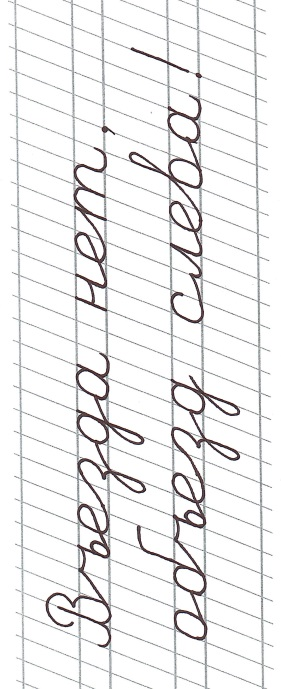 Въезда нет,
объезд слева!